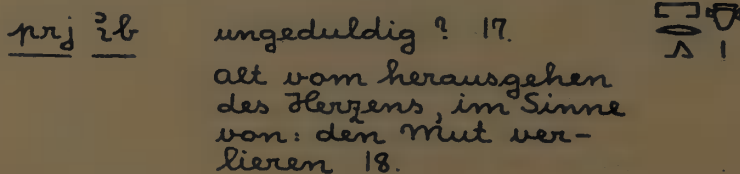 prj ꜣib ungeduldig ? 17. 𓉐𓄣𓂋𓏤𓂻
alt vom herausgehen
des Herzens, im Sinne
von: den Mut ver-
lieren 18.